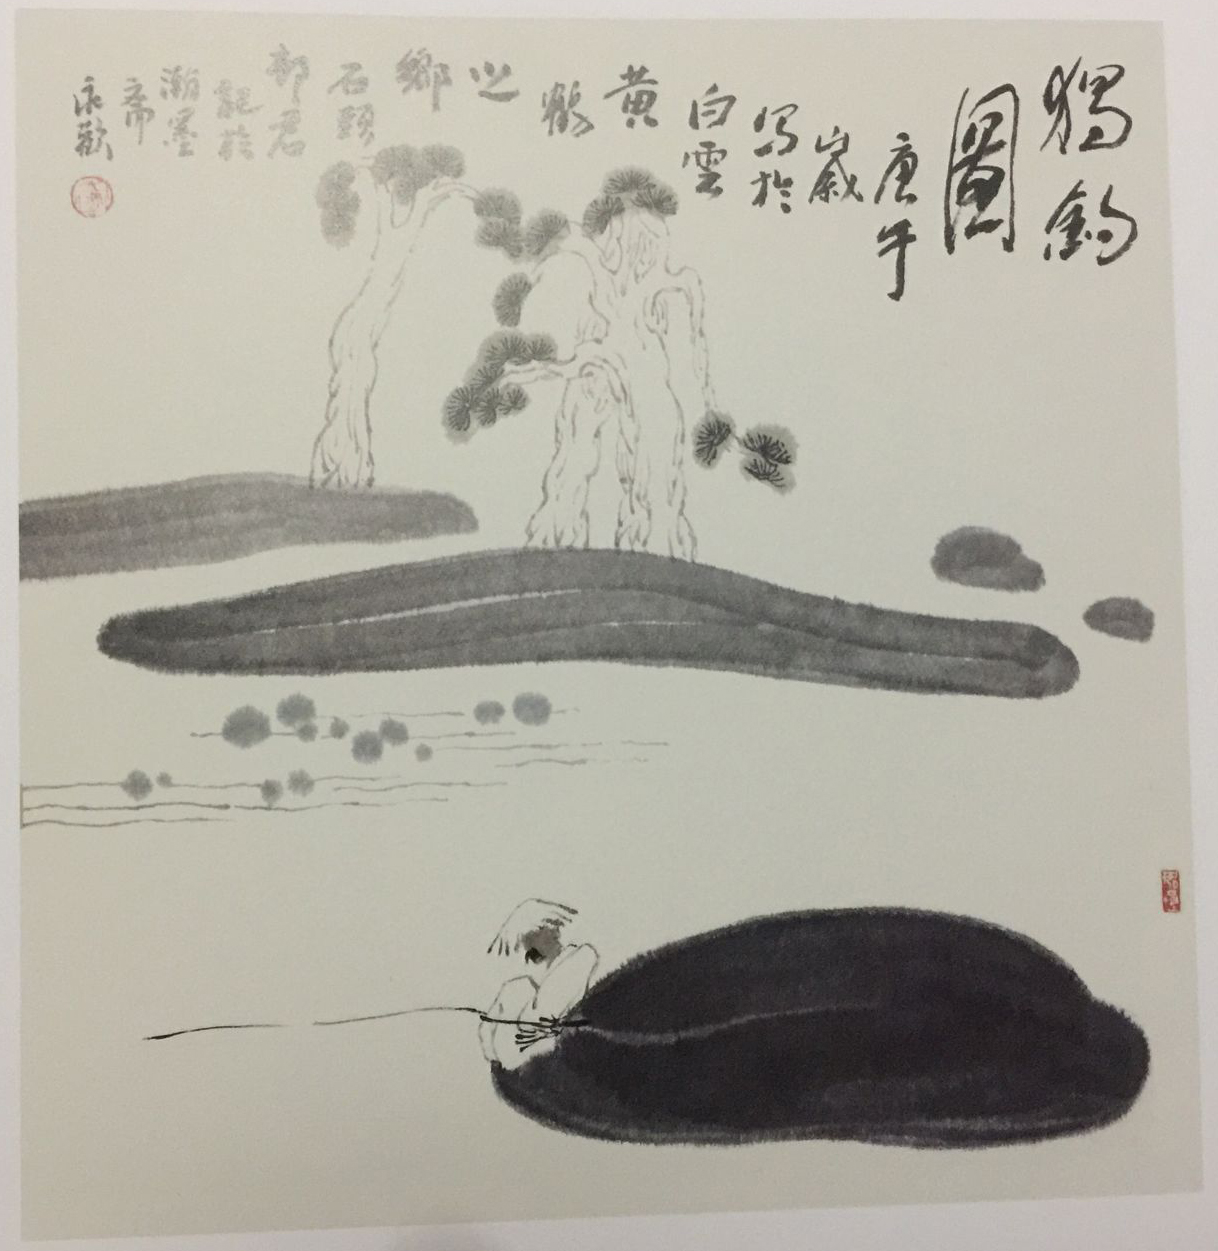 獨釣
圖
庚午
歲
寫於
白雲
黄
鶴
之
鄉
石頭
部君
記於
潮墨
齋
永歡